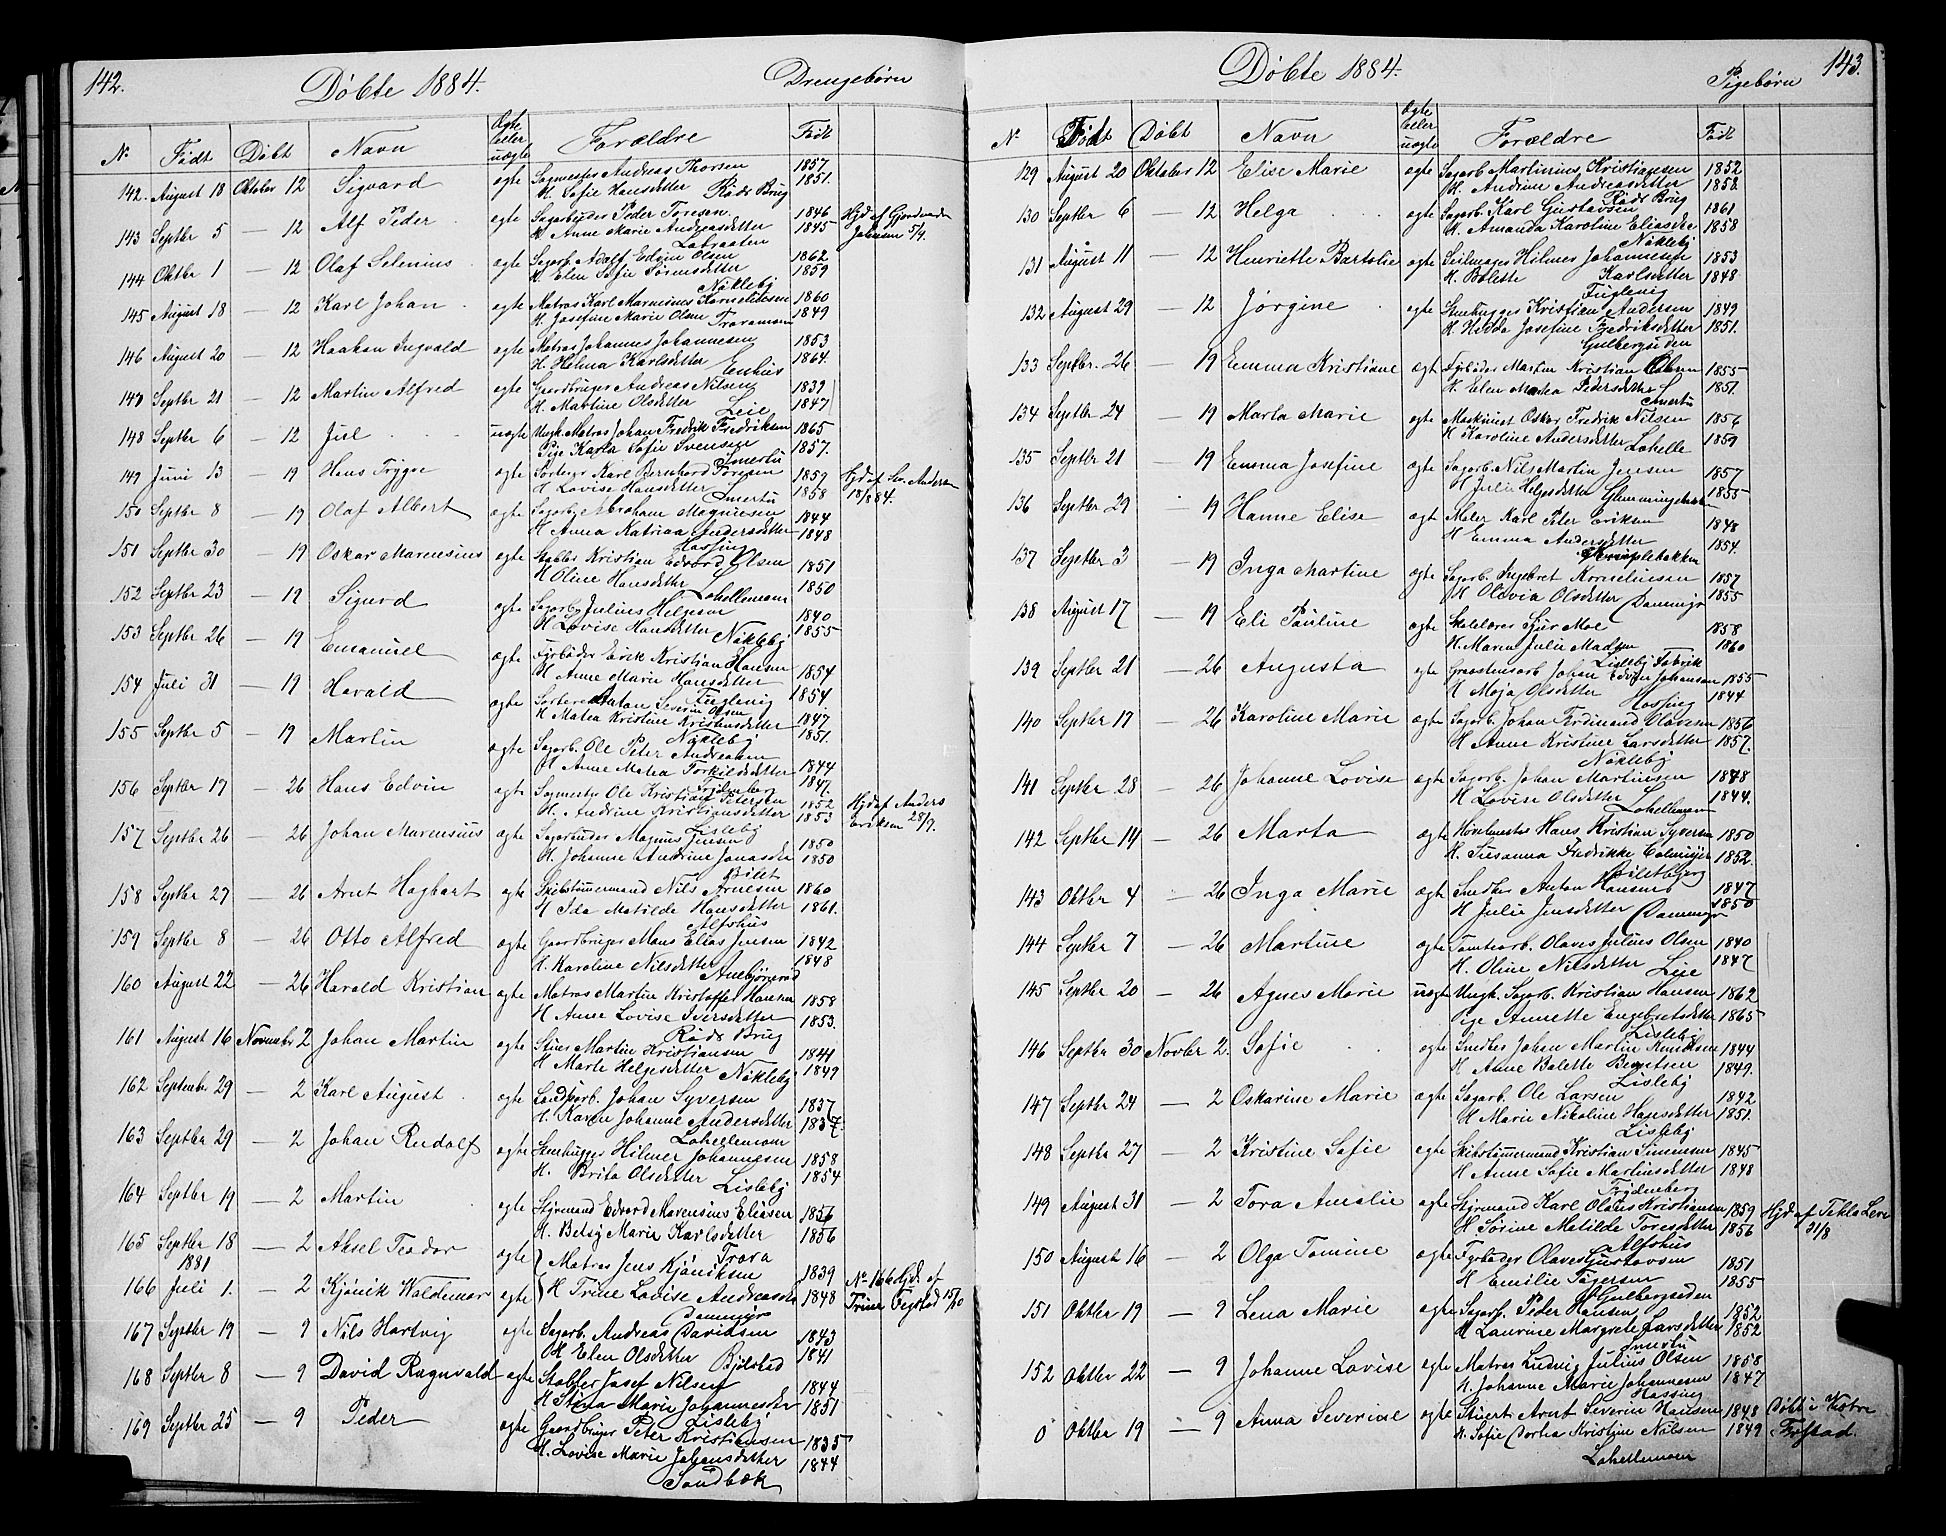 142.
Döbte 1884.
Drengebørn
No Födt Döbt Navn Ægte eller uægte Forældre Födt
142. August 18 Oktober 12 Sigvard ægte Sagmester Andreas Thorsen 1857
H. Sofie Hansdetter Röds Brug 1851.
143 Septbr 5 — 12 Alf Peder ægte Sagarbeider Peder Toresen 1846 Hjd af
H Anne Marie Andreasdetter 1845 Johnsen 5/9.
Labraaten
144 Oktbr 1 — 12 Olaf Selenius ægte Sagarb. Adolf Edvin Olsen 1862
H. Elen Sofie Sörensdetter 1859
Nökleby
145 August 18 — 12 Karl Johan ægte Matros Karl Marensius Korneliusen 1860
H. Josefine Marie Olsen Traramoen 1849
146 August 20 — 12 Haakon Ingvald ægte Matros Johannes Johannesen 1853
H. Helma Karlsdetter Enhus 1864.
147 Septbr 21 — 12 Martin Alfred ægte Gaardbruger Andreas Nilsen 1839
H. Martine Olsdetter Leie 1847
148 Septbr 6 — 12 Jul uægte Ungk. Matros Johan Fredrik Fredriksen 1865
Pige Karla Sofie Svensen 1857.
Smertu
149 Juni 13 — 19 Hans Trygve ægte Karl Bernhard Toresen 1859 Hjd af Sv. Andersen
H Lovise Hansdetter Smertu 1858 18/6 84.
150 Septbr 8 — 19 Olaf Albert ægte Sagarb Abraham Magnusen 1844
H Anna Katrina Andersdetter 1848
151 Septbr 30 — 19 Oskar Marensius ægte Stabler Kristian Edvard Olsen 1851
H Oline Hansdetter Lahellemoen 1850
152 Septbr 23 — 19 Sigurd ægte Sagarb Julius Helgesen 1840
H Lovise Hansdetter Nökleby 1855
153 Septbr 26 — 19 Emanuel ægte Fyrböder Erik Kristian Hansen 1854
H Anne Marie Hansdetter 1854
Fuglevig
154 Juli 31 — 19 Harald ægte Anton Severin Olsen 1847
H Matea Kristine Kristensdetter 1851.
Nökleby
155 Septbr 5 — 19 Martin ægte Sagarb. Ole Peter Andreassen 1844
H Anne Matea Torkildsdetter 1847.
Frydenberg
156 Septbr 17 — 26 Hans Edvin ægte Sagmester Ole Kristian Petersen 1852 Hjd af Anders
H. Andrine Kristiansdetter 1853 Eriksen 28/9.
Lisleby
157 Septbr 26 — 26 Johan Marensius ægte Sagarbeider Magnus Jensen 1850
H. Johanne Andrine Jonasdtr 1850
158 Septbr 27 — 26 Arnt Hagbart ægte Skibstömmermand Nils Arnesen 1860
H Ida Matilde Hansdetter 1861.
Alfshus
159 Septbr 8 — 26 Otto Alfred ægte Gaardbruger Mons Elias Jensen 1842
H. Karoline Nilsdetter 1848
160 August 22 — 26 Harald Kristian ægte Matros Martin Kristoffer Hansen 1858
H Anne Lovise Iversdetter 1853.
Röds Brug
161 August 16 November 2 Johan Martin ægte Martin Kristiansen 1841
H Marte Helgesdetter Nökleby 1849
162 September 29 — 2 Karl August ægte Johan Syversen 1837
H. Karen Johanne Andersdetter 1837.
Lahellemoen
163 Septbr 29 — 2 Johan Rudolf ægte Stenhugger Hilmer Johannesen 1858
H. Brita Olsdetter Lisleby 1854
164 Septbr 19 — 2 Martin ægte Styrmand Edvard Marensius Eliasen 1856
H. Betsy Marie Karlsdetter 1856
Trara
165 Septbr 18 — 2 Aksel Teodor ægte Matros Jens Kjönigsen 1839
1881
166 Juli 1. — 2 Kjönik Waldemar ægte H Trine Lovise Andreasdtr 1848 No 166 Hjd. af
Trine 15/10
167 Septbr 19 — 9 Nils Hartvig ægte Sagarb. Andreas Davidsen 1843
H Elen Olsdetter Bjölstad 1841
168 Septbr 8 — 9 David Ragnvald ægte Stabler Josef Nilsen 1844
H Stina Marie Johannesdtr 1851
Lisleby
169 Septbr 25 — 9 Peder ægte Gaardbruger Peter Kristiansen 1835
H. Lovise Marie Johansdetter 1844
Sandbæk
143.
Döbte 1884.
Pigebörn
No Födt Döbt Navn Ægte eller uægte Forældre Födt
129 August 20 Oktober 12 Elise Marie ægte Sagarb Martinius Kristiansen 1852
H. Andrine Andreasdetter 1852
Röds Brug
130 Septbr 6 — 12 Helga ægte Sagarb. Karl Gustavsen 1861
H. Amanda Karoline Eliasdtr 1858
Nökleby
131 August 11 — 12 Henriette Bartolie ægte Seilmager Hilmer Johannesen 1853
H. Bolette Karlsdetter 1848
Fuglevig
132 August 29 — 12 Jörgine ægte Stenhugger Kristian Andersen 1849
H. Hedda Josefine Fredriksdetter 1851.
Gulbergsiden
133 Septbr. 26 — 19 Emma Kristiane ægte Fyrböder Martin Kristian Olsen 1855
H. Elen Matea Pedersdetter 1851.
Smertu
134 Septbr 24 — 19 Marta Marie ægte Maskinist Oskar Fredrik Nilsen 1856
H Karoline Andersdetter Lahelle 1859
135 Septbr 21 — 19 Emma Josefine ægte Sagarb. Nils Martin Jensen 1857
H Julie Helgesdetter 1855
136 Septbr 29 — 19 Hanne Elise ægte Maler Karl Peter Eriksen 1848
H Emma Andersdetter 1854.
137 Septbr 3 — 19 Inga Martine ægte Sagarb. Ingebret Korneliussen 1857
H Olevia Olsdetter Dammyr 1855
138 August 17 — 19 Eli Pauline ægte Skolelærer Sjur Moe 1858
H. Maren Julie Madsen 1860
Lisleby Fabrik
139 Septbr 21 — 26 Augusta ægte Graastensarb Johan Edvin Johansen 1855
H Maja Olsdetter 1844
Hassing
140 Septbr 17 — 26 Karoline Marie ægte Sagarb. Johan Ferdinand Olavesen 1856
H Anne Kristine Larsdetter 1857.
Nökleby
141 Septbr 28 — 26 Johanne Lovise ægte Sagarb. Johan Martinsen 1848
H Lovise Olsdetter Lahellemoen 1844.
142 Septbr 14 — 26 Marta ægte Hövlmester Hans Kristian Syversen 1850
H. Susanna Fredrikke 1852.
143 Oktbr 4 — 26 Inga Marie ægte Smed Anton Hansen 1847
H Julie Jensdetter Dammyr 1850
144 Septbr 7 — 26 Martine ægte Tomtearb. Olaves Julius Olsen 1840
H. Oline Nilsdetter Leie 1847
145 Septbr 20 — 26 Agnes Marie uægte Ungk. Sagarb. Kristian Hansen 1862
Pige Annette Engebretsdetter 1865
Lisleby
146 Septbr 30 Novbr 2. Sofie ægte Smed Johan Martin Knudsen 1844
H Anne Bolette Berntsen 1849.
Lisleby
147 Septbr 24 — 2 Oskarine Marie ægte Sagarb. Ole Larsen 1842
H Marie Nikoline Hansdetter 1851.
Lisleby
148 Septbr 27 — 2 Kristine Sofie ægte Skibstömmermand Kristian Simensen 1845
H Anne Sofie Martinsdetter 1848
Frydenberg
149 August 31 — 2 Tora Amalie ægte Styrmand Karl Olaus Kristiansen 1859 Hjd af Tekla
H Sörine Matilde Toresdetter 1856 31/8
Alfshus
150 August 16 — 2 Olga Tomine ægte Fyrböder Olaves Gustavsen 1851
H Emilie Tögersen 1855
Gulbergsiden
151 Oktbr 19 — 9 Lena Marie ægte Sagarb. Peder Hansen 1852
H Laurine Margrete Larsdetter 1852
Smertu
152 Oktbr 22 — 9 Johanne Lovise ægte Matros Ludvig Julius Olsen 1858
H. Johanne Marie Johannesen 1847
Hassing
0 Oktbr 19 — 9 Anna Severine ægte Stuert Arnt Severin Hansen 1848 Döbt i Vestre
H. Sofie Dortea Kristine Nilsen 1849 Frstad.
Lahellemoen